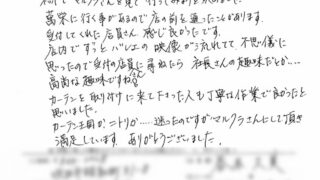 葛栄に行く事があるので店の前を通ったことがあります。
受付してくれた店員さん 感じ良かったです。
店内でずっとバレエの映像が流れてて不思議に
思ったので受付の店員に尋ねたら 社長さんの趣味だとか…
高尚な趣味ですねぇ
カーテンを取り付けに来て下さった人も丁寧な作業で良かったと
思いました。
カーテン王国かニトリか……迷ったのですがマルクラさんにして頂き
満足しています。ありがとうございました。